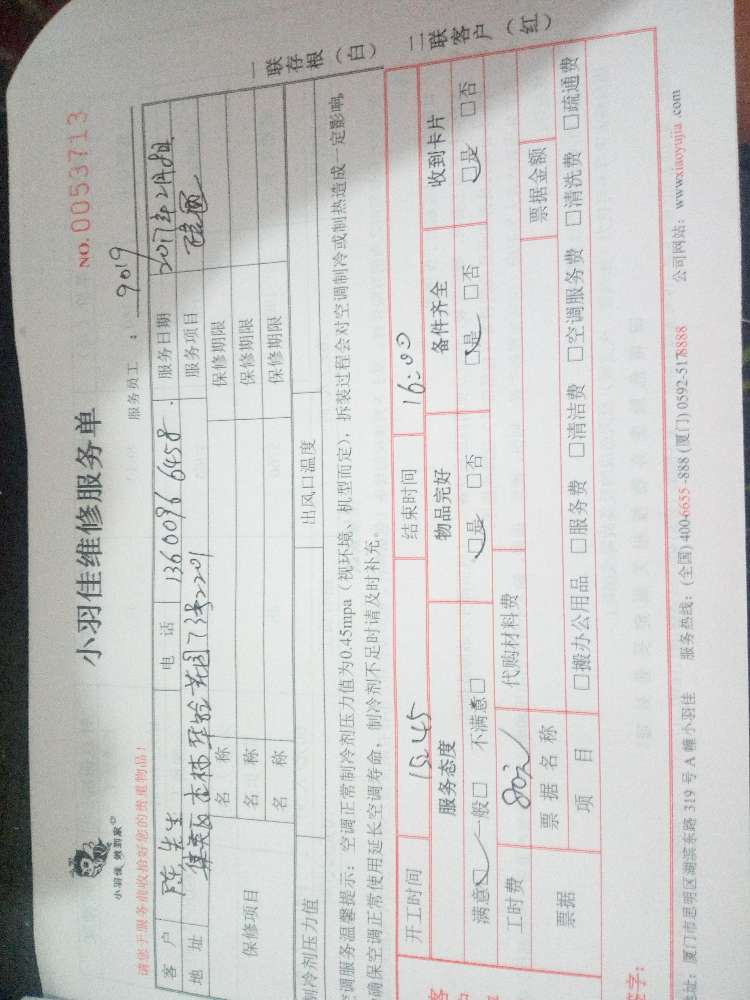 小羽佳 做到家
小羽佳维修服务单
NO.0053713
请您于服务前收拾好您的贵重物品！
服务员工： 9019
客户 陈先生 电话 13600966458 服务日期 2017年2月8日
地址 集美区杏林华铃花园7号2201 服务项目
保修项目 名称 保修期限
名称 保修期限
名称 保修期限
制冷剂压力值 出风口温度
空调服务温馨提示：空调正常制冷剂压力值为0.45mpa（视环境、机型而定），拆装过程会对空调制冷或制热造成一定影响，
确保空调正常使用延长空调寿命，制冷剂不足时请及时补充。
一联存根（白） 二联客户（红）
开工时间 15:45 结束时间 16:00
服务态度 物品完好 备件齐全 收到卡片
满意☑ 一般□ 不满意□ ☑是 □否 ☑是 □否 ☑是 □否
工时费 80元 代购材料费
票据 票据名称 票据金额
项目 □搬办公用品 □服务费 □清洁费 □空调服务费 □清洗费 □疏通费
字：
址：厦门市思明区湖滨东路319号A幢小羽佳 服务热线：(全国)400-6655-888 (厦门)0592-5178888 公司网站：www.xiaoyujia.com